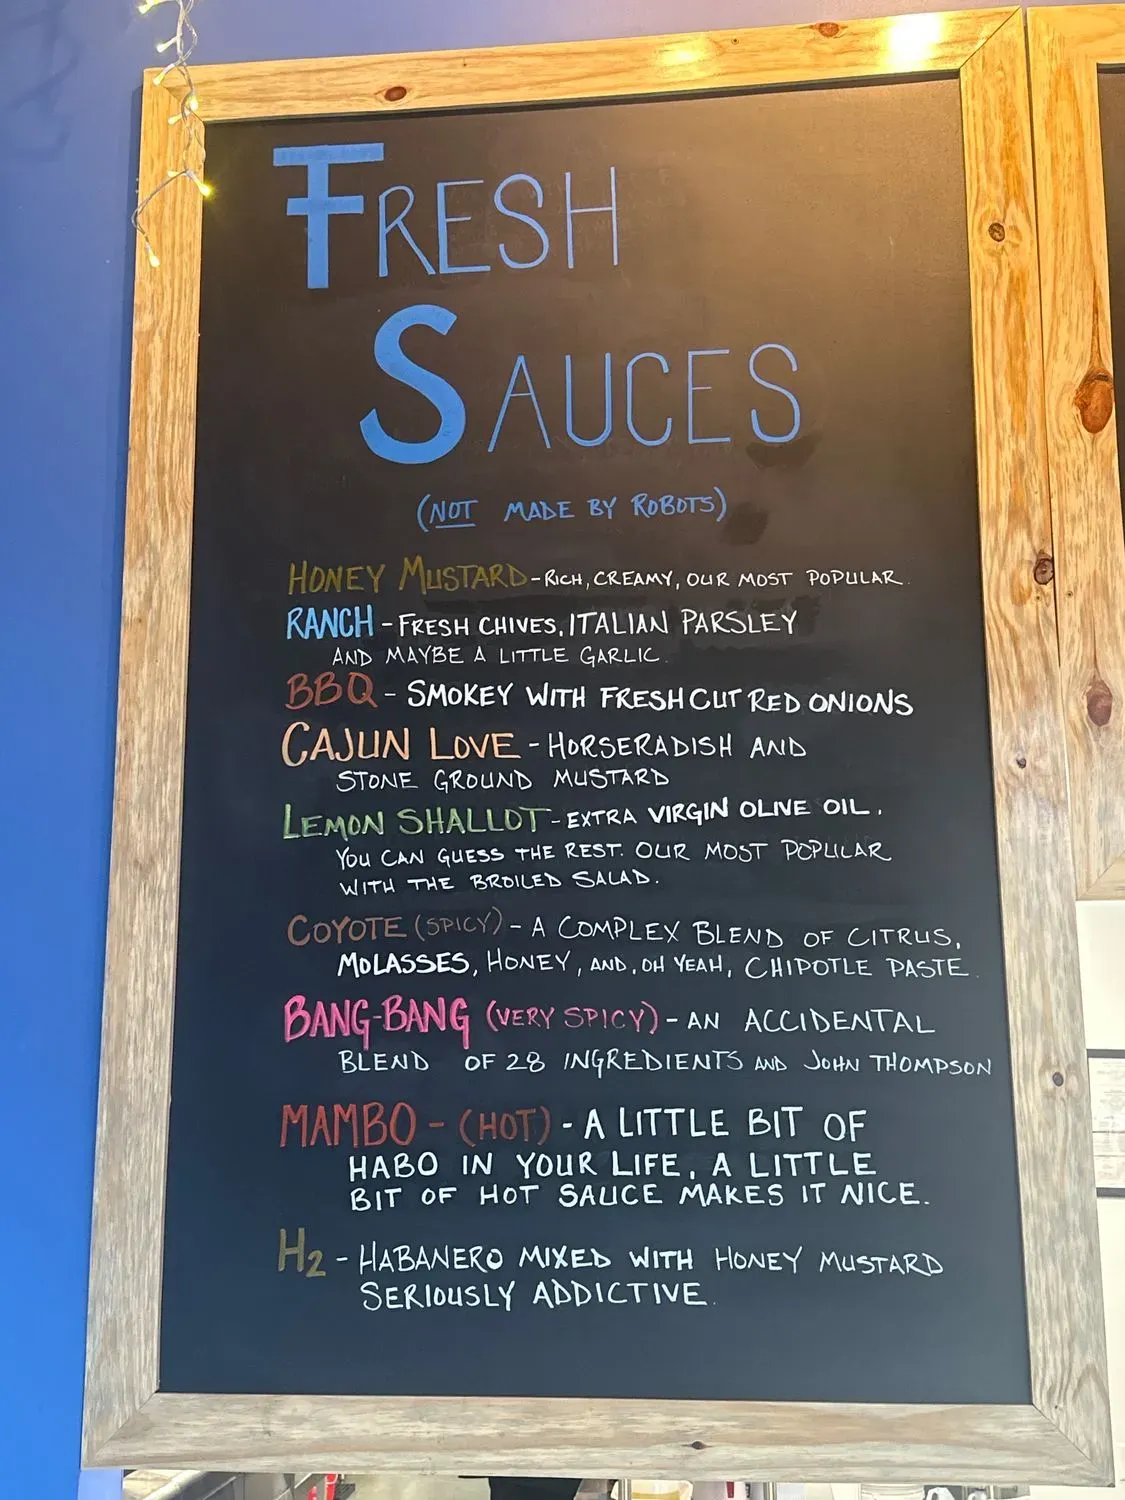 FRESH
SAUCES
(NOT MADE BY ROBOTS)
HONEY MUSTARD - RICH, CREAMY, OUR MOST POPULAR.
RANCH - FRESH CHIVES, ITALIAN PARSLEY
AND MAYBE A LITTLE GARLIC.
BBQ - SMOKEY WITH FRESH CUT RED ONIONS
CAJUN LOVE - HORSERADISH AND
STONE GROUND MUSTARD
LEMON SHALLOT - EXTRA VIRGIN OLIVE OIL,
YOU CAN GUESS THE REST. OUR MOST POPULAR
WITH THE BROILED SALAD.
COYOTE (SPICY) - A COMPLEX BLEND OF CITRUS,
MOLASSES, HONEY, AND, OH YEAH, CHIPOTLE PASTE.
BANG-BANG (VERY SPICY) - AN ACCIDENTAL
BLEND OF 28 INGREDIENTS AND JOHN THOMPSON
MAMBO - (HOT) - A LITTLE BIT OF
HABO IN YOUR LIFE, A LITTLE
BIT OF HOT SAUCE MAKES IT NICE.
H2 - HABANERO MIXED WITH HONEY MUSTARD
SERIOUSLY ADDICTIVE.